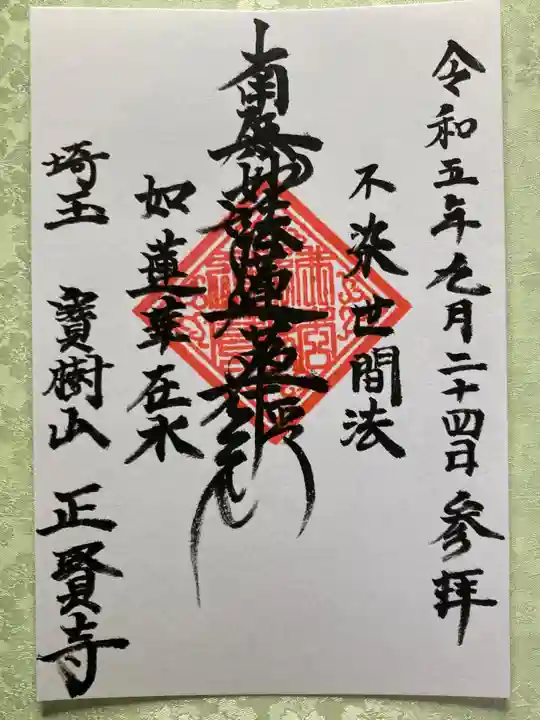 令和五年九月二十四日 参拝
不染世間法
南無妙法蓮華経
如蓮華在水
埼玉 寶樹山 正賢寺